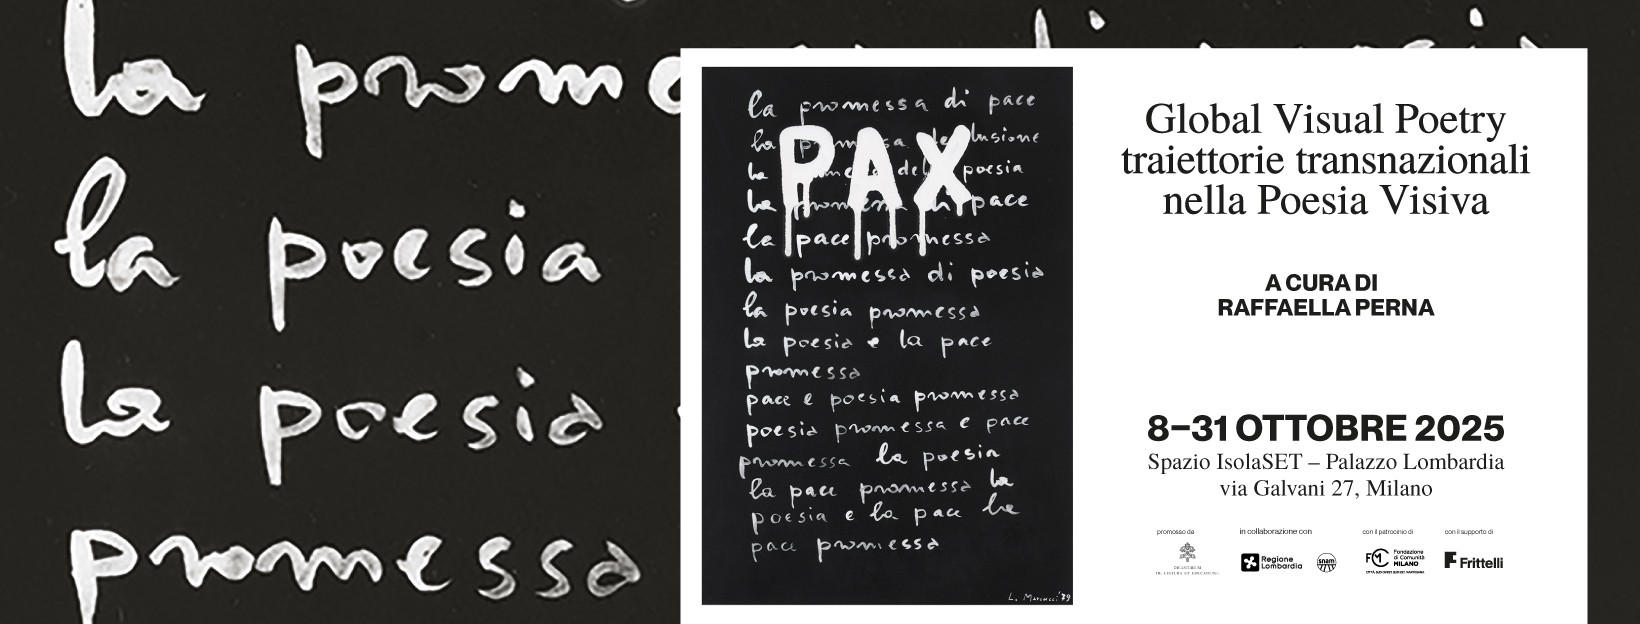 la prome
la poesia
la poesia
promessa
la promessa di pace
la promessa delusione
la promessa della poesia
la promessa di pace
la pace promessa
la promessa di poesia
la poesia promessa
la poesia e la pace
promessa
pace e poesia promessa
poesia promessa e pace
promessa la poesia
la pace promessa la
poesia e la pace la
pace promessa
PAX
L. Marcucci '89
Global Visual Poetry
traiettorie transnazionali
nella Poesia Visiva
A CURA DI
RAFFAELLA PERNA
8–31 OTTOBRE 2025
Spazio IsolaSET – Palazzo Lombardia
via Galvani 27, Milano
promosso da
in collaborazione con
con il patrocinio di
con il supporto di
Regione
Lombardia
snam
Fondazione
di Comunità
MILANO
Frittelli